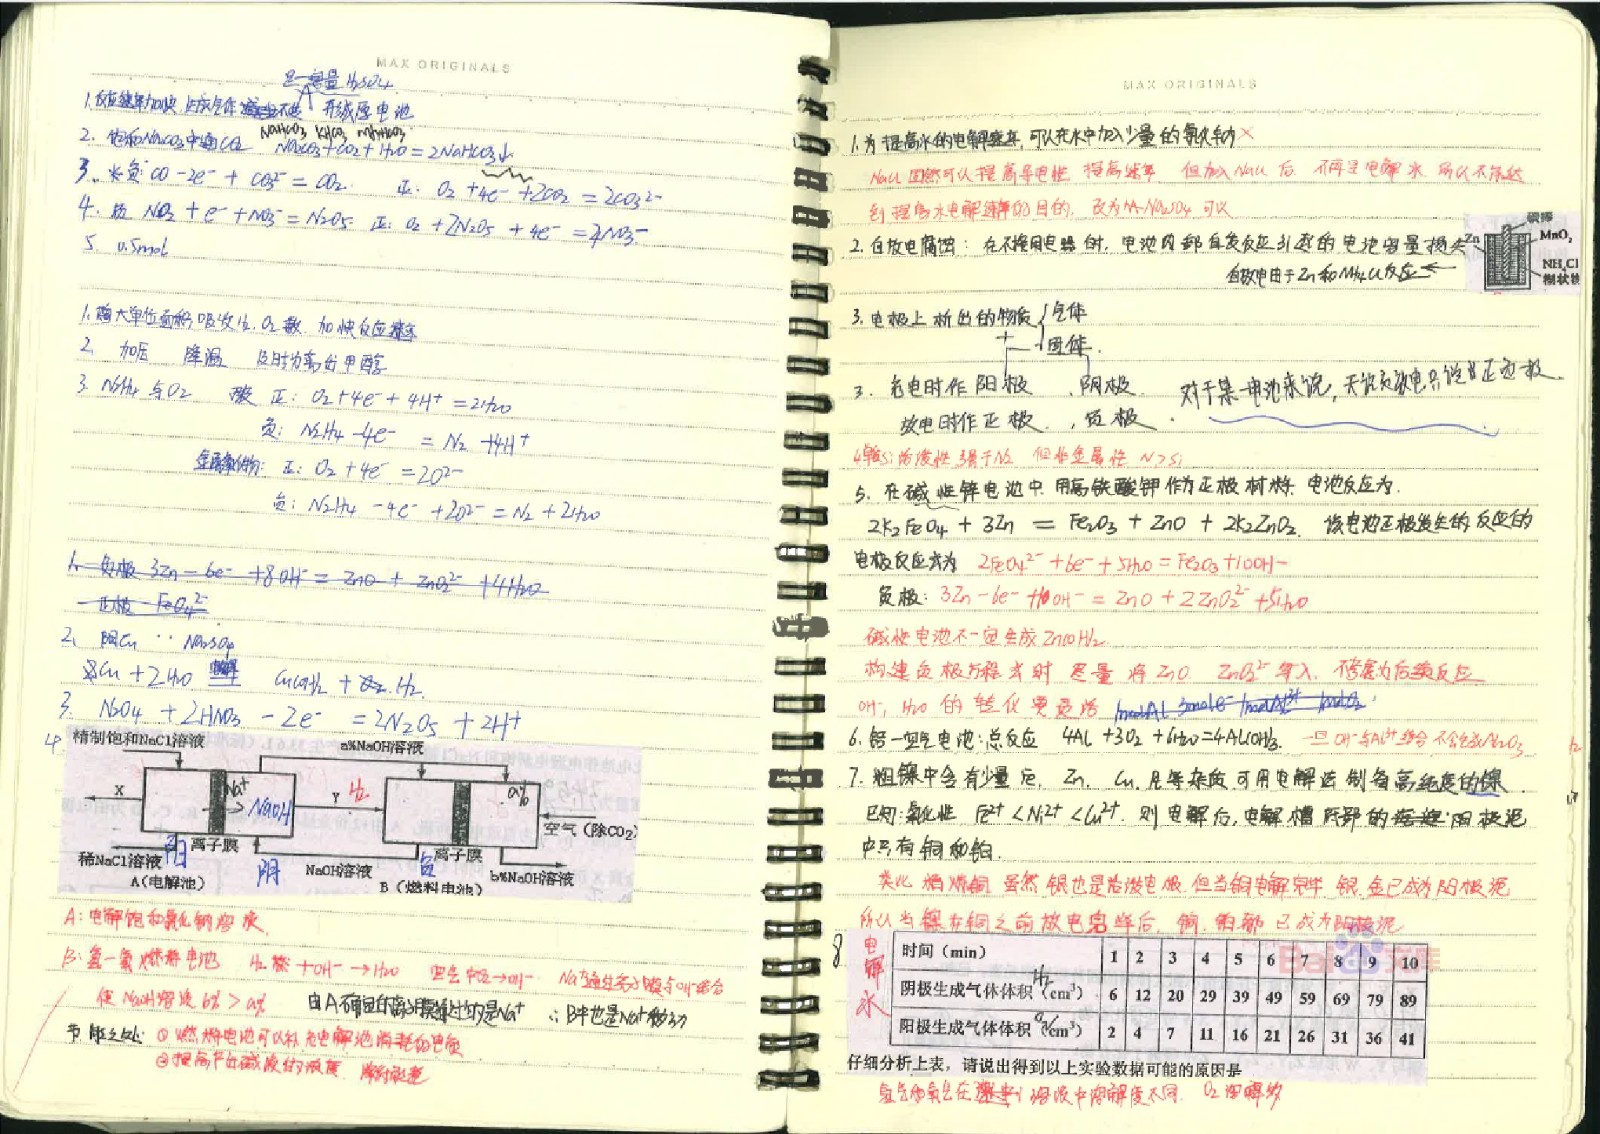 MAX ORIGINALS
定一定量H2SO4
1.反应速率加快 生成气体 不变 形成原电池
NaHCO3 KHCO3 NH4HCO3
2. 饱和Na2CO3中通CO2 Na2CO3+CO2+H2O=2NaHCO3↓
3. 负:CO-2e⁻+CO3²⁻=CO2. 正: O2+4e⁻+2CO2=2CO3²⁻
4. NO2+e⁻+NO3⁻=N2O5 正: O2+2N2O5+4e⁻=4NO3⁻
5. 0.5mol
1.增大单位面积吸收H2.O2数 加快反应速率
2. 加压 降温 及时分离出甲醇
3. N2H4与O2 酸 正: O2+4e⁻+4H⁺=2H2O
负: N2H4-4e⁻=N2+4H⁺
正: O2+4e⁻=2O²⁻
负: N2H4-4e⁻+2O²⁻=N2+2H2O
1. 负极 3Zn-6e⁻+8OH⁻=ZnO+ZnO2²⁻+4H2O
正极 FeO4²⁻
2. 阳Cu Na2SO4
Cu+2H2O 电解 Cu(OH)2+H2.
3. N2O4+2HNO3-2e⁻=2N2O5+2H⁺
4.
精制饱和NaCl溶液 a%NaOH溶液
X Na⁺ NaOH Y H2 a%
空气（除CO2）
离子膜 离子膜
稀NaCl溶液 阳 阴 NaOH溶液 负 b%NaOH溶液
A（电解池） B（燃料电池）
A:电解饱和氯化钠溶液.
B:氢—氧燃料电池 H2 +OH⁻→H2O 空气中O2→OH⁻ Na⁺通过离子膜与OH⁻结合
使NaOH溶液b%>a% 由A确定离子膜通过的是Na⁺ ∴B中也是Na⁺移动
节能之处: ①燃料电池可以补充电解池消耗的电能
②提高产出碱液的浓度.
MAX ORIGINALS
1.为提高水的电解速率,可以在水中加入少量的氯化钠×
NaCl固然可以提高导电性 提高速率 但加入NaCl后 不再是电解水.所以不能达
到提高水电解速率的目的, 改为Na2SO4可以
2.自放电腐蚀: 在不接用电器时,电池内部自发反应引起的电池容量损失
自放电由于Zn和NH4Cl反应←
碳棒
Zn
MnO2
NH4Cl
糊状物
3.电极上析出的物质{气体
固体.
3. 充电时作 阳极 .阴极
放电时作正极 ,负极.
对于某一电池来说,无论充放电只说其正负极.
4.单质Si活泼性强于N2 但非金属性 N>Si
5.在碱性锌电池中.用高铁酸钾作为正极材料.电池反应为.
2K2FeO4+3Zn=Fe2O3+ZnO+2K2ZnO2. 该电池正极发生的反应的
电极反应式为 2FeO4²⁻+6e⁻+5H2O=Fe2O3+10OH⁻
负极: 3Zn-6e⁻+10OH⁻=ZnO+2ZnO2²⁻+5H2O
碱性电池不一定生成Zn(OH)2.
构建负极方程式时 尽量将ZnO ZnO2²⁻写入. 不考虑为后续反应
OH⁻, H2O的转化更灵活
6.铝—空气电池:总反应 4Al+3O2+6H2O=4Al(OH)3. 一旦OH⁻与Al³⁺结合不会生成Al2O3
7.粗镍中含有少量Fe, Zn, Cu, Pt等杂质可用电解法制备高纯度的镍
已知:氧化性 Fe²⁺<Ni²⁺<Cu²⁺. 则电解后,电解槽底部的阳极泥
中只有铜和铂.
类比 精炼铜.虽然银也是活泼电极.但当铜电解完毕.银.金已成为阳极泥
所以当镍在铜之前放电完毕后,铜.铂都已成为阳极泥
8 电解水
时间（min） 1 2 3 4 5 6 7 8 9 10
阴极生成气体体积H2（cm³） 6 12 20 29 39 49 59 69 79 89
阳极生成气体体积O2（cm³） 2 4 7 11 16 21 26 31 36 41
仔细分析上表，请说出得到以上实验数据可能的原因是
氢气和氧气在溶液中溶解度不同. O2溶解多